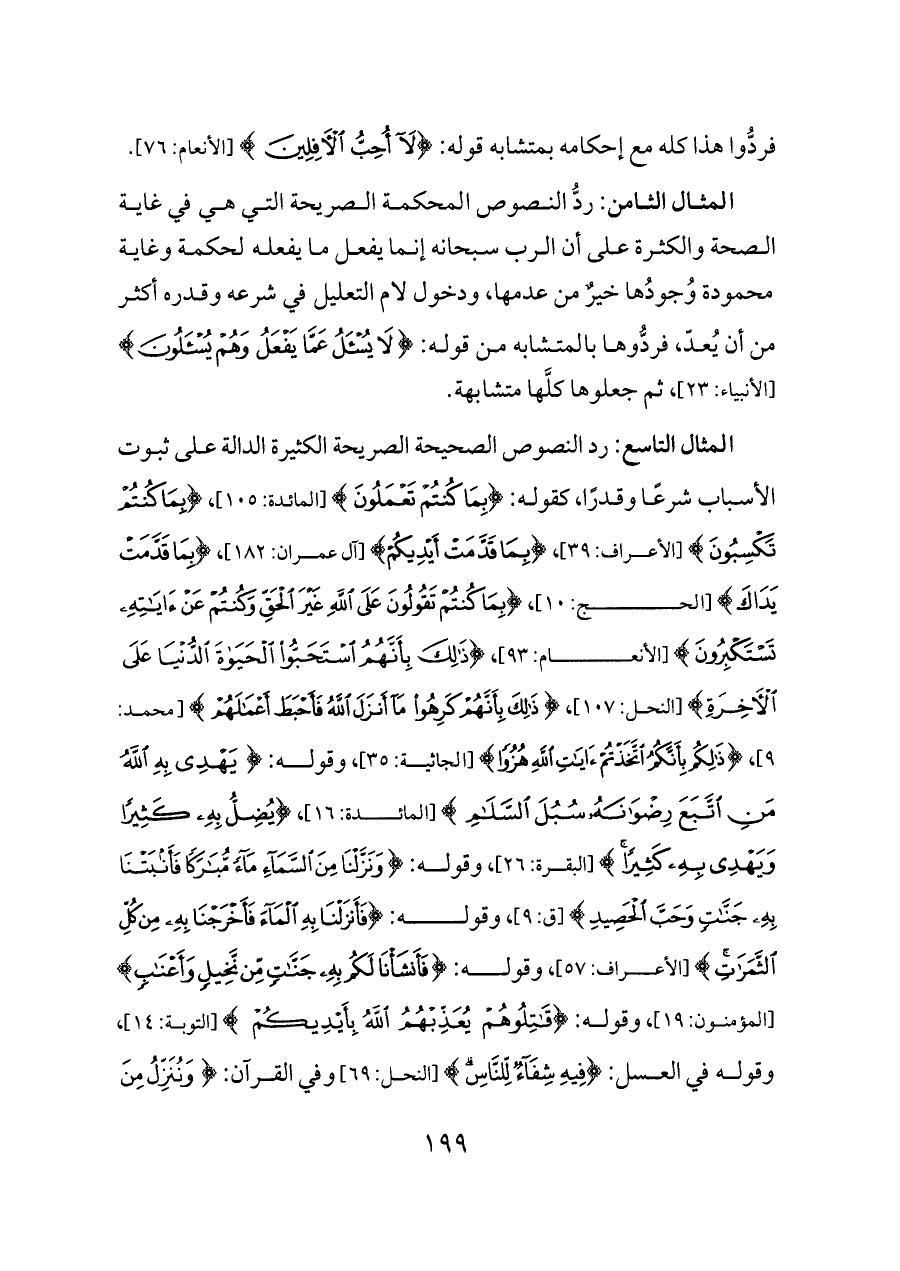 فردُّوا هذا كله مع إحكامه بمتشابه قوله: ﴿لَآ أُحِبُّ ٱلْأَفِلِينَ﴾ [الأنعام: ٧٦].
المثال الثامن: ردُّ النصوص المحكمة الصريحة التي هي في غاية
الصحة والكثرة على أن الرب سبحانه إنما يفعل ما يفعله لحكمة وغاية
محمودة وُجودُها خيرٌ من عدمها، ودخول لام التعليل في شرعه وقدره أكثر
من أن يُعدّ، فردُّوها بالمتشابه من قوله: ﴿لَا يُسْـَٔلُ عَمَّا يَفْعَلُ وَهُمْ يُسْـَٔلُونَ﴾
[الأنبياء: ٢٣]، ثم جعلوها كلَّها متشابهة.
المثال التاسع: رد النصوص الصحيحة الصريحة الكثيرة الدالة على ثبوت
الأسباب شرعًا وقدرًا، كقوله: ﴿بِمَا كُنتُمْ تَعْمَلُونَ﴾ [المائدة: ١٠٥]، ﴿بِمَا كُنتُمْ
تَكْسِبُونَ﴾ [الأعراف: ٣٩]، ﴿بِمَا قَدَّمَتْ أَيْدِيكُمْ﴾ [آل عمران: ١٨٢]، ﴿بِمَا قَدَّمَتْ
يَدَاكَ﴾ [الحج: ١٠]، ﴿بِمَا كُنتُمْ تَقُولُونَ عَلَى ٱللَّهِ غَيْرَ ٱلْحَقِّ وَكُنتُمْ عَنْ ءَايَٰتِهِۦ
تَسْتَكْبِرُونَ﴾ [الأنعام: ٩٣]، ﴿ذَٰلِكَ بِأَنَّهُمُ ٱسْتَحَبُّوا۟ ٱلْحَيَوٰةَ ٱلدُّنْيَا عَلَى
ٱلْأَخِرَةِ﴾ [النحل: ١٠٧]، ﴿ذَٰلِكَ بِأَنَّهُمْ كَرِهُوا۟ مَآ أَنزَلَ ٱللَّهُ فَأَحْبَطَ أَعْمَٰلَهُمْ﴾ [محمد:
٩]، ﴿ذَٰلِكُم بِأَنَّكُمُ ٱتَّخَذْتُمْ ءَايَٰتِ ٱللَّهِ هُزُوًا﴾ [الجاثية: ٣٥]، وقوله: ﴿يَهْدِى بِهِ ٱللَّهُ
مَنِ ٱتَّبَعَ رِضْوَٰنَهُۥ سُبُلَ ٱلسَّلَٰمِ﴾ [المائدة: ١٦]، ﴿يُضِلُّ بِهِۦ كَثِيرًا
وَيَهْدِى بِهِۦ كَثِيرًاۚ﴾ [البقرة: ٢٦]، وقوله: ﴿وَنَزَّلْنَا مِنَ ٱلسَّمَآءِ مَآءً مُّبَٰرَكًا فَأَنۢبَتْنَا
بِهِۦ جَنَّٰتٍ وَحَبَّ ٱلْحَصِيدِ﴾ [ق: ٩]، وقوله: ﴿فَأَنزَلْنَا بِهِ ٱلْمَآءَ فَأَخْرَجْنَا بِهِۦ مِن كُلِّ
ٱلثَّمَرَٰتِۚ﴾ [الأعراف: ٥٧]، وقوله: ﴿فَأَنشَأْنَا لَكُم بِهِۦ جَنَّٰتٍ مِّن نَّخِيلٍ وَأَعْنَٰبٍ﴾
[المؤمنون: ١٩]، وقوله: ﴿قَٰتِلُوهُمْ يُعَذِّبْهُمُ ٱللَّهُ بِأَيْدِيكُمْ﴾ [التوبة: ١٤]،
وقوله في العسل: ﴿فِيهِ شِفَآءٌ لِّلنَّاسِۗ﴾ [النحل: ٦٩] وفي القرآن: ﴿وَنُنَزِّلُ مِنَ
١٩٩